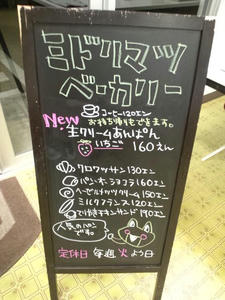 ミドリマツ
ベーカリー
コーヒー120エン
お持ち帰りもできます。
New
生クリームあんぱん
いちご 160えん
クロワッサン130エン
パン・オ・ショコラ160エン
ヘーゼルナッツクリーム150エン
ミルクフランス120エン
てりやきチキンサンド190エン
人気のパン
です。
定休日 毎週火よう日